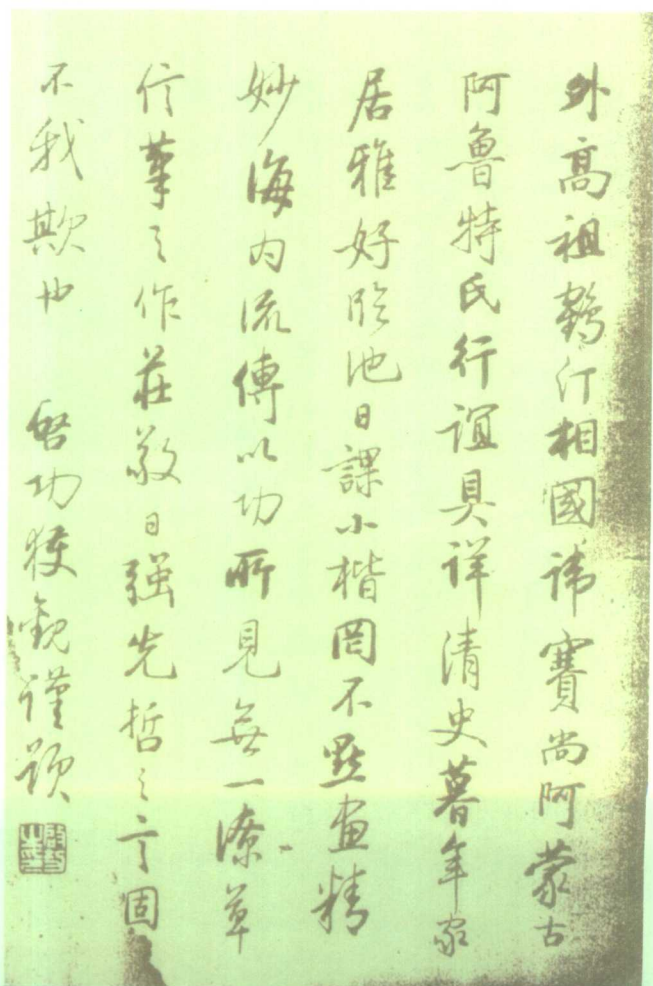 外高祖鶴汀相國諱賽尚阿蒙古
阿魯特氏行誼具詳清史暮年家
居雅好臨池日課小楷罔不點畫精
妙海内流傳以功所見無一潦草
信筆之作莊敬日強先哲之言固
不我欺也 啓功獲觀謹題